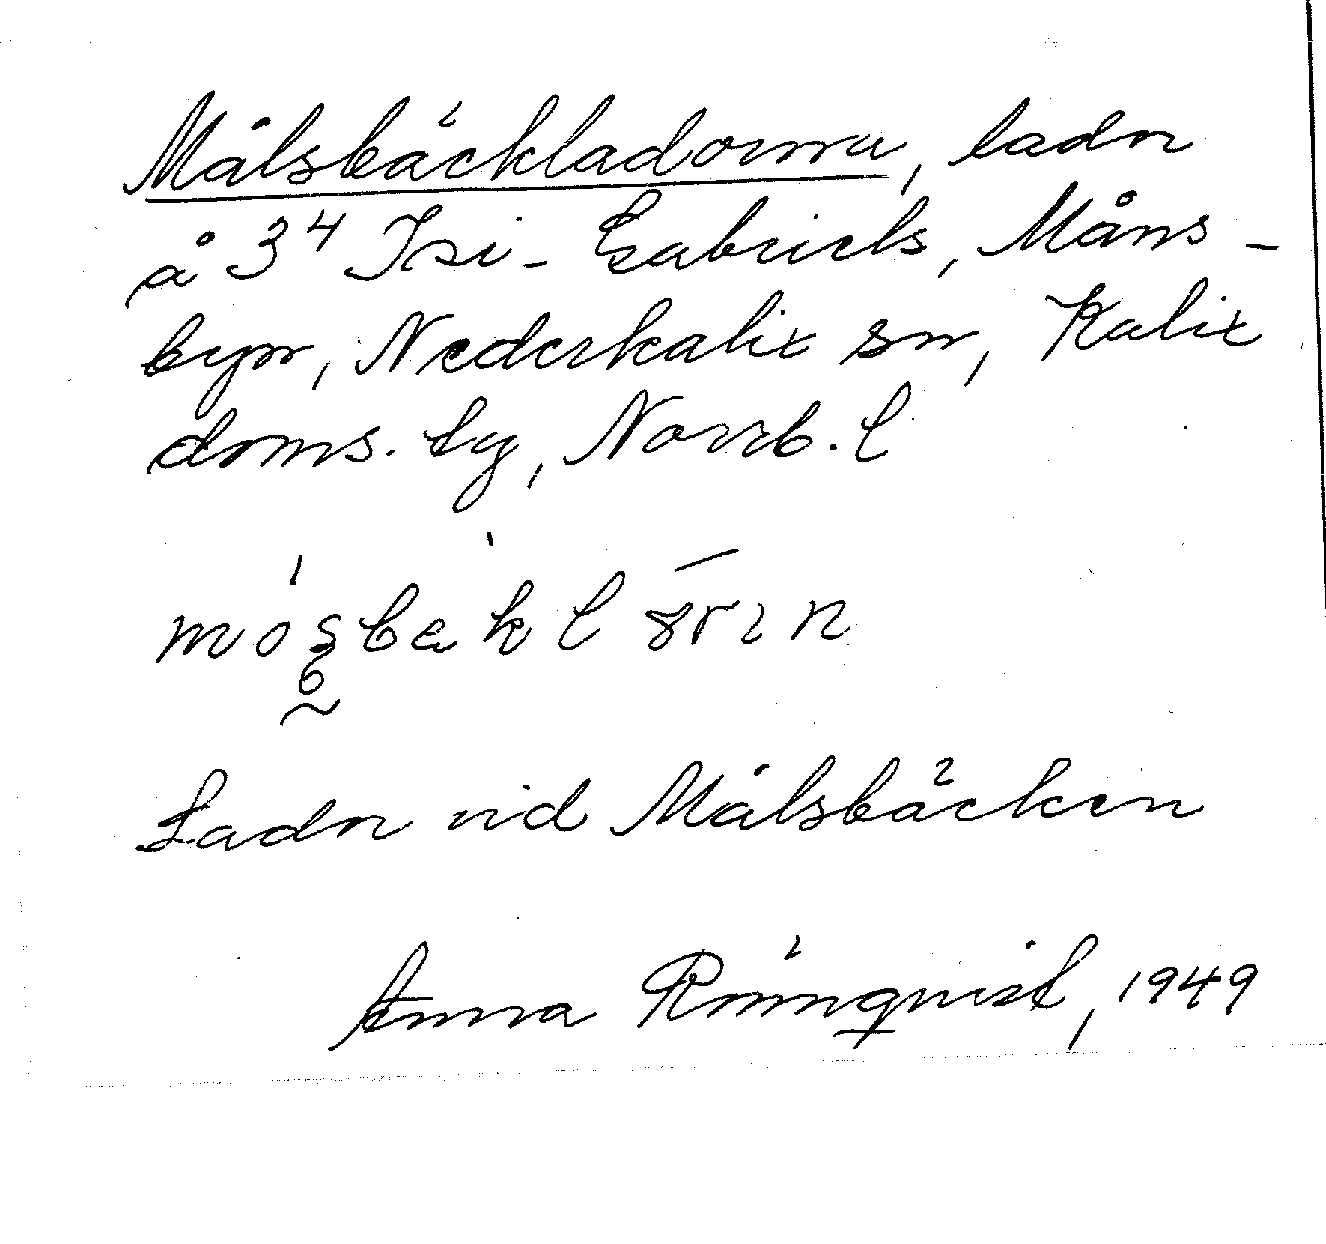 Målsbäckladorna, ladr
å 3⁴ Isi-Gabriels, Måns-
byn, Nederkalix sn, Kalix
doms. lg, Norrb. l
Lador vid Målsbäcken
Anna Rönnqvist, 1949